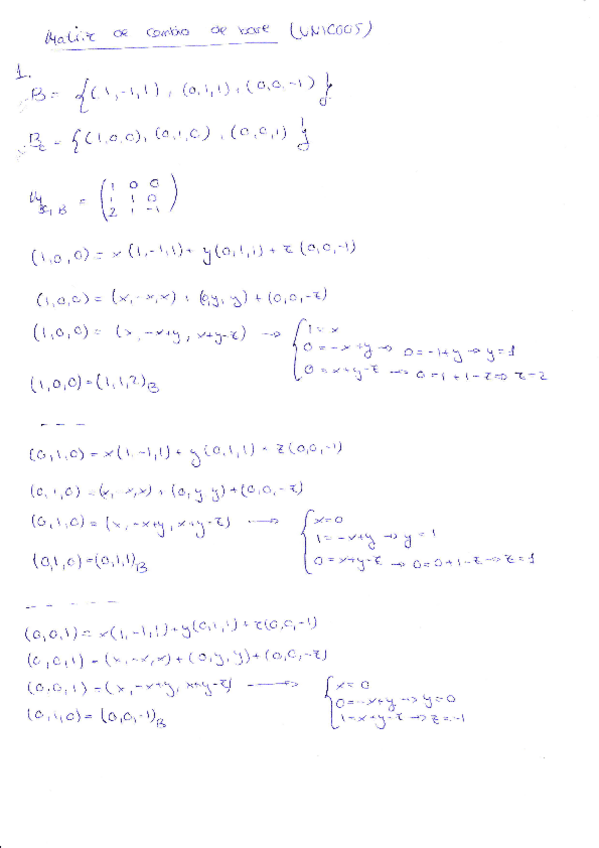 Matriz de cambio de base (UNICOOS)
1.
B = {(1,-1,1), (0,1,1), (0,0,-1)}
Bc = {(1,0,0), (0,1,0), (0,0,1)}
M Bc,B = (1 0 0
1 1 0
2 1 -1)
(1,0,0) = x(1,-1,1) + y(0,1,1) + z(0,0,-1)
(1,0,0) = (x,-x,x) + (0,y,y) + (0,0,-z)
(1,0,0) = (x, -x+y, x+y-z) → { 1 = x
0 = -x+y → 0 = -1+y → y = 1
0 = x+y-z → 0 = 1+1-z → z = 2
(1,0,0) = (1,1,2)B
- - -
(0,1,0) = x(1,-1,1) + y(0,1,1) + z(0,0,-1)
(0,1,0) = (x,-x,x) + (0,y,y) + (0,0,-z)
(0,1,0) = (x, -x+y, x+y-z) → { x = 0
1 = -x+y → y = 1
0 = x+y-z → 0 = 0+1-z → z = 1
(0,1,0) = (0,1,1)B
- - - - -
(0,0,1) = x(1,-1,1) + y(0,1,1) + z(0,0,-1)
(0,0,1) = (x,-x,x) + (0,y,y) + (0,0,-z)
(0,0,1) = (x, -x+y, x+y-z) → { x = 0
0 = -x+y → y = 0
1 = x+y-z → z = -1
(0,1,0) = (0,0,-1)B